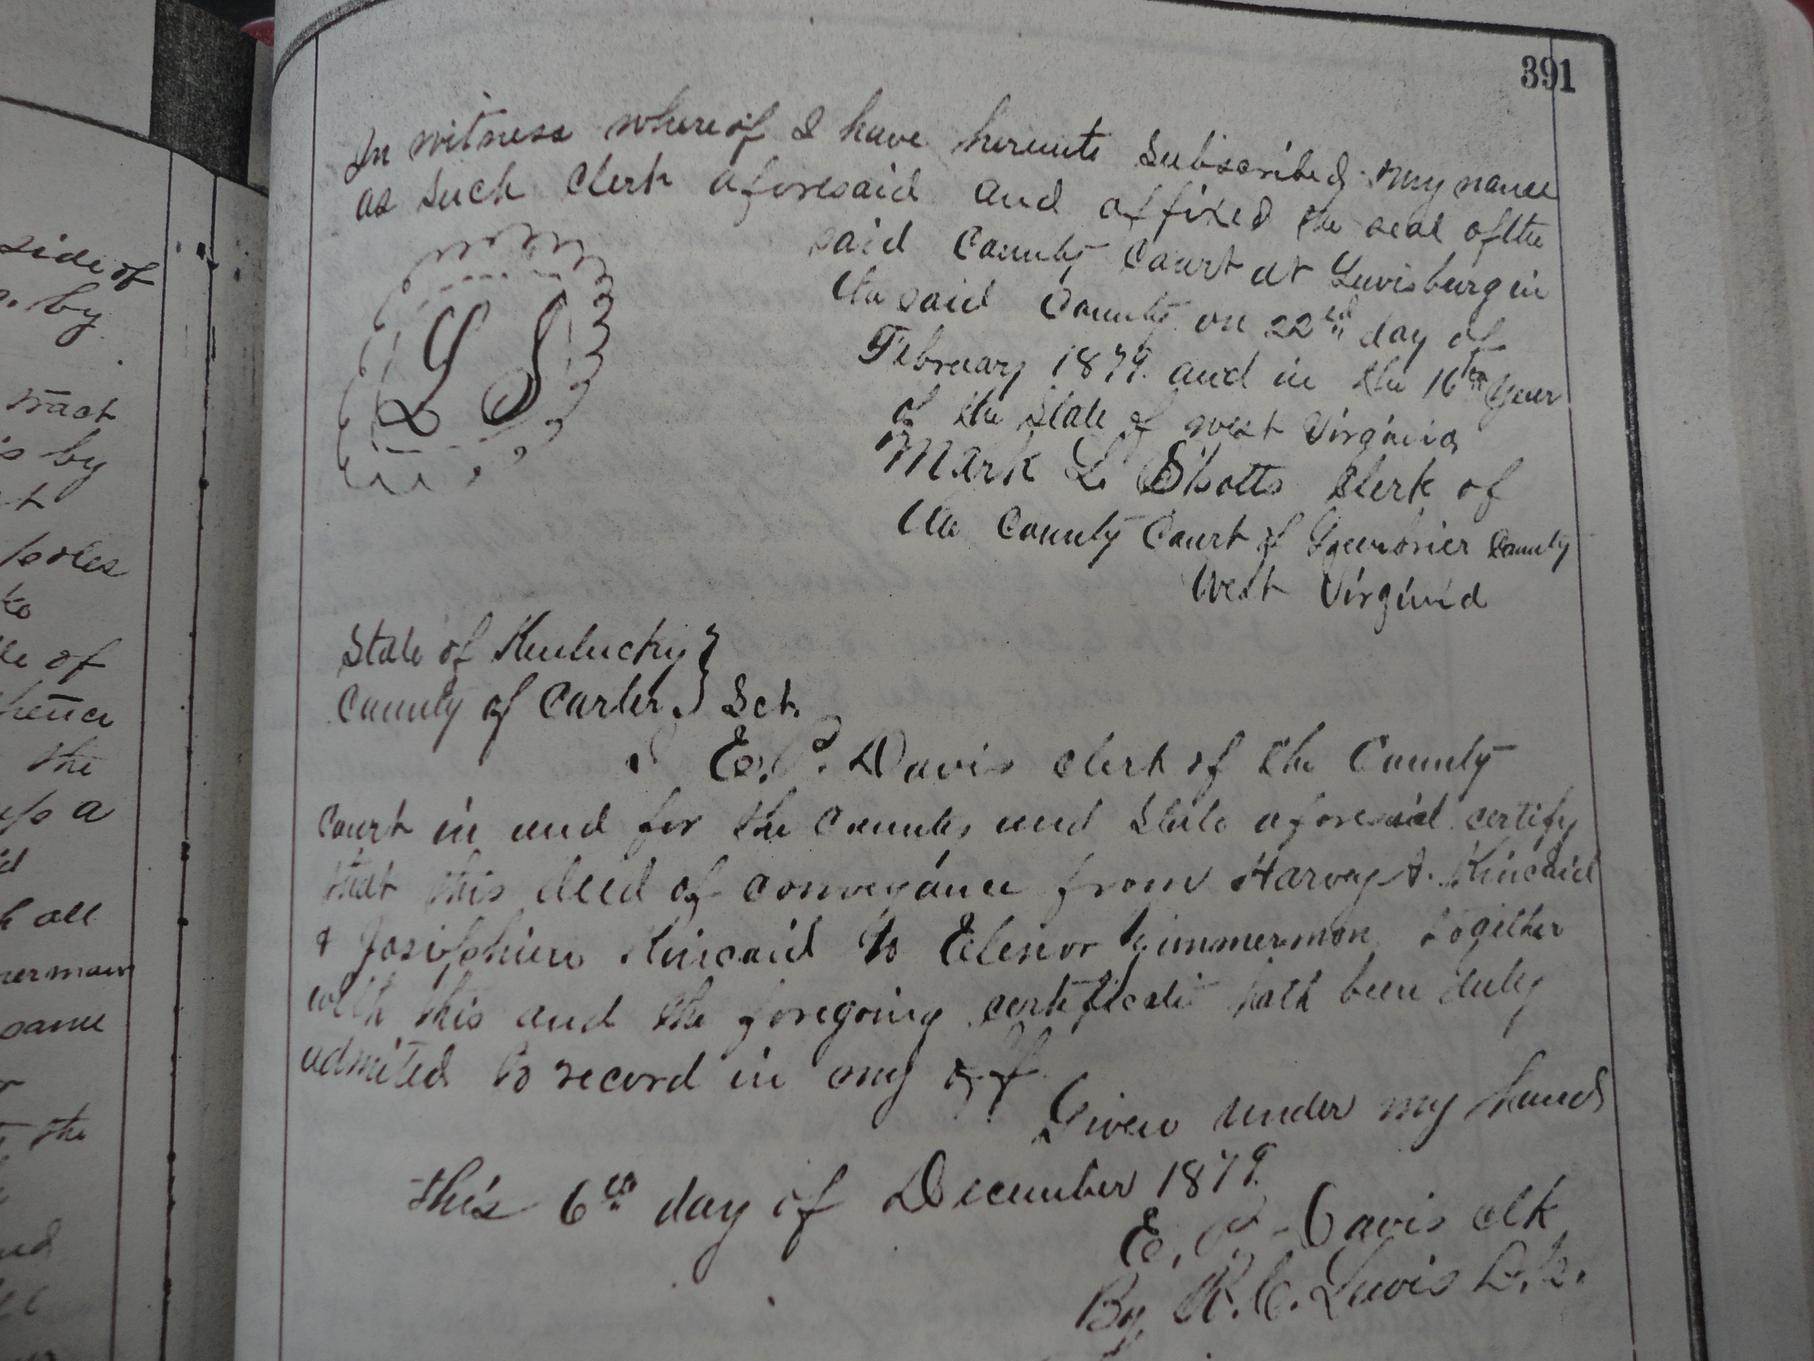 391
In witness whereof I have hereunto Subscribed my name
as Such Clerk aforesaid and affixed the seal of the
said County Court at Lewisburg in
the said County on 22nd day of
February 1879. and in the 16th year
of the State of west Virginia
Mark L. Shotts Clerk of
the County Court of Greenbrier County
West Virginia
L S
State of Kentucky }
County of Carter. } Sct.
I E. Davis clerk of the County
Court in and for the County and State aforesaid certify
that this deed of conveyance from Harvey A. Kincaid
& Josiphine Kincaid to Elenor Zimmermon together
with this and the foregoing certificate hath been duly
admited to record in my off
Given under my hand
this 6th day of December 1879.
E. Davis clk
By R. C. Lewis D.k.
side of
by
tract
by
poles
to
of
thence
the
up a
all
merman
same
the